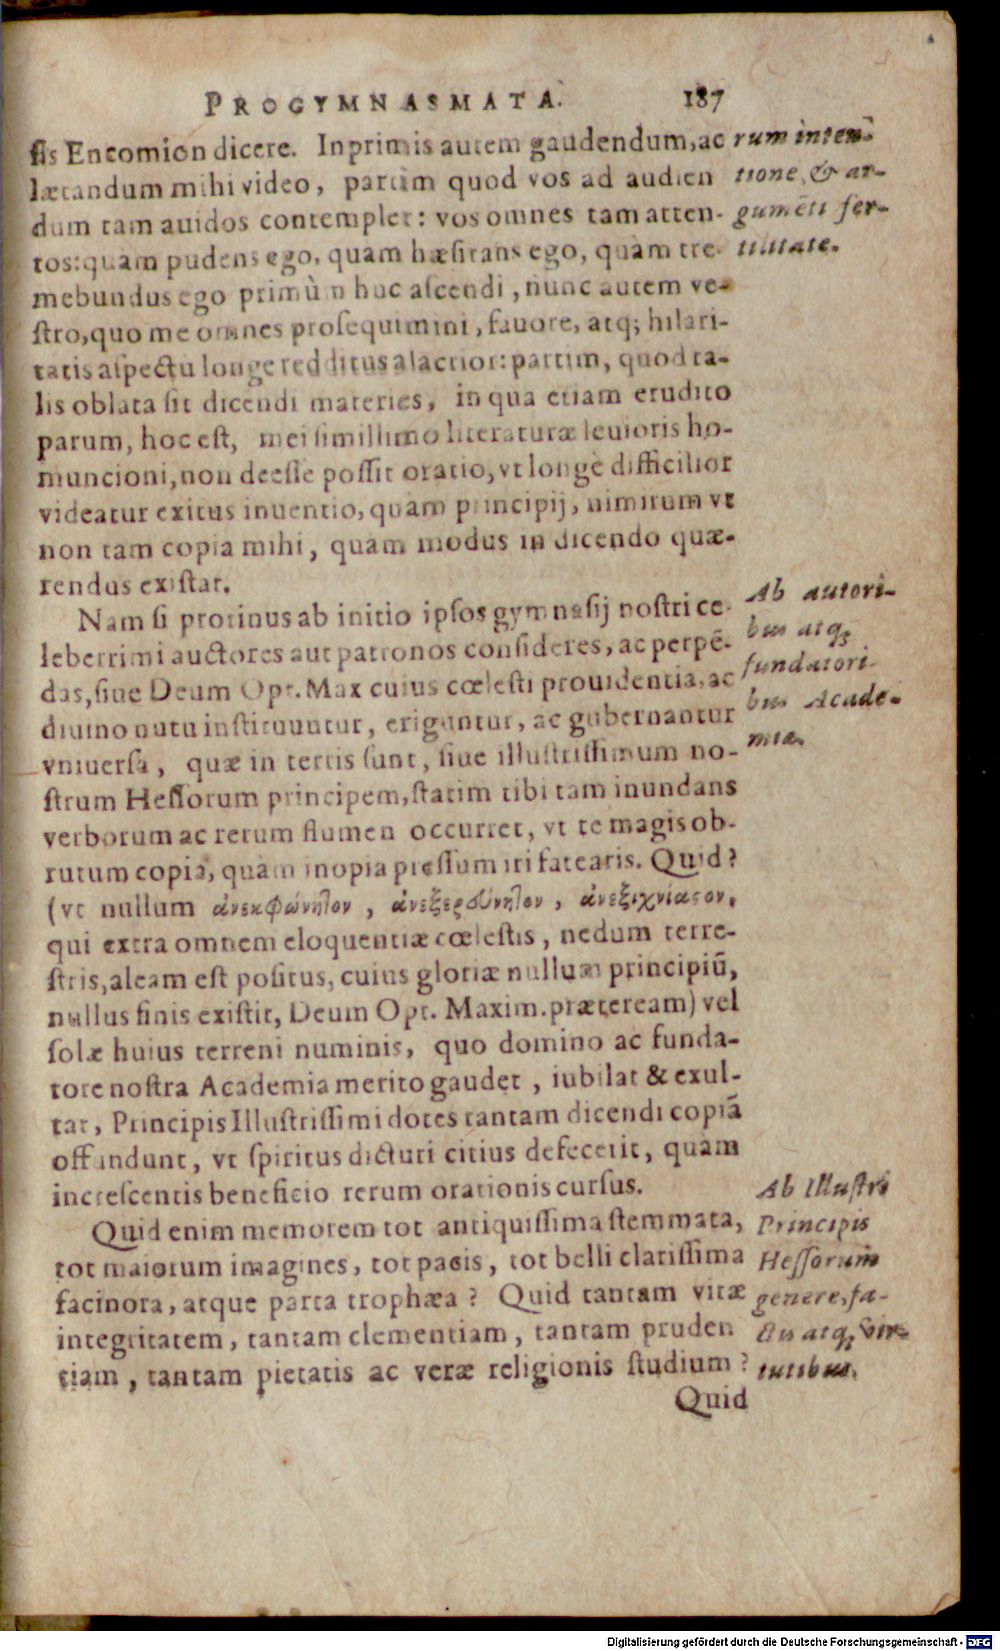 PROGYMNASMATA. 187
ſis Encomion dicere. Inprimis autem gaudendum, ac
lætandum mihi video, partim quod vos ad audien
dum tam auidos contempler: vos omnes tam atten-
tos: quàm pudens ego, quam hæsitans ego, quàm tre-
mebundus ego primùm huc aſcendi, nunc autem ve-
ſtro, quo me omnes proſequimini, fauore, atq; hilari-
tatis aſpectu longe redditus alacrior: partim, quod ta-
lis oblata ſit dicendi materies, in qua etiam erudito
parum, hoc eſt, mei ſimillimo literaturæ leuioris ho-
muncioni, non deeſſe poſſit oratio, vt longè difficilior
videatur exitus inuentio, quàm principij, nimirum vt
non tam copia mihi, quam modus in dicendo quæ-
rendus exiſtat.
Nam ſi protinus ab initio ipſos gymnaſij noſtri ce-
leberrimi auctores aut patronos conſideres, ac perpē-
das, ſiue Deum Opt. Max cuius cœleſti prouidentia, ac
diuino nutu inſtituuntur, eriguntur, ac gubernantur
vniuerſa, quæ in terris ſunt, ſiue illuſtriſſimum no-
ſtrum Heſſorum principem, ſtatim tibi tam inundans
verborum ac rerum flumen occurret, vt te magis ob-
rutum copia, quàm inopia preſſum iri fatearis. Quid?
(vt nullum ἀνεκφώνητον, ἀνεξερδύνητον, ἀνεξιχνίαστον,
qui extra omnem eloquentiæ cœleſtis, nedum terre-
ſtris, aleam eſt poſitus, cuius gloriæ nullum principiū,
nullus finis exiſtit, Deum Opt. Maxim. præteream) vel
ſolæ huius terreni numinis, quo domino ac funda-
tore noſtra Academia merito gaudet, iubilat & exul-
tat, Principis Illuſtriſſimi dotes tantam dicendi copiā
offundunt, vt ſpiritus dicturi citius defecerit, quàm
increſcentis beneficio rerum orationis curſus.
Quid enim memorem tot antiquiſſima ſtemmata,
tot maiorum imagines, tot pacis, tot belli clariſſima
facinora, atque parta trophæa? Quid tantam vitæ
integritatem, tantam clementiam, tantam pruden
tiam, tantam pietatis ac veræ religionis ſtudium?
Quid
rum inten-
tione, & ar-
gumēti fer-
tilitate.
Ab autori-
bus atq;
fundatori-
bus Acade-
miæ.
Ab Illuſtris
Principis
Heſſorum
genere, fa-
ctis atq; vir-
tutibus.
Digitalisierung gefördert durch die Deutsche Forschungsgemeinschaft - DFG